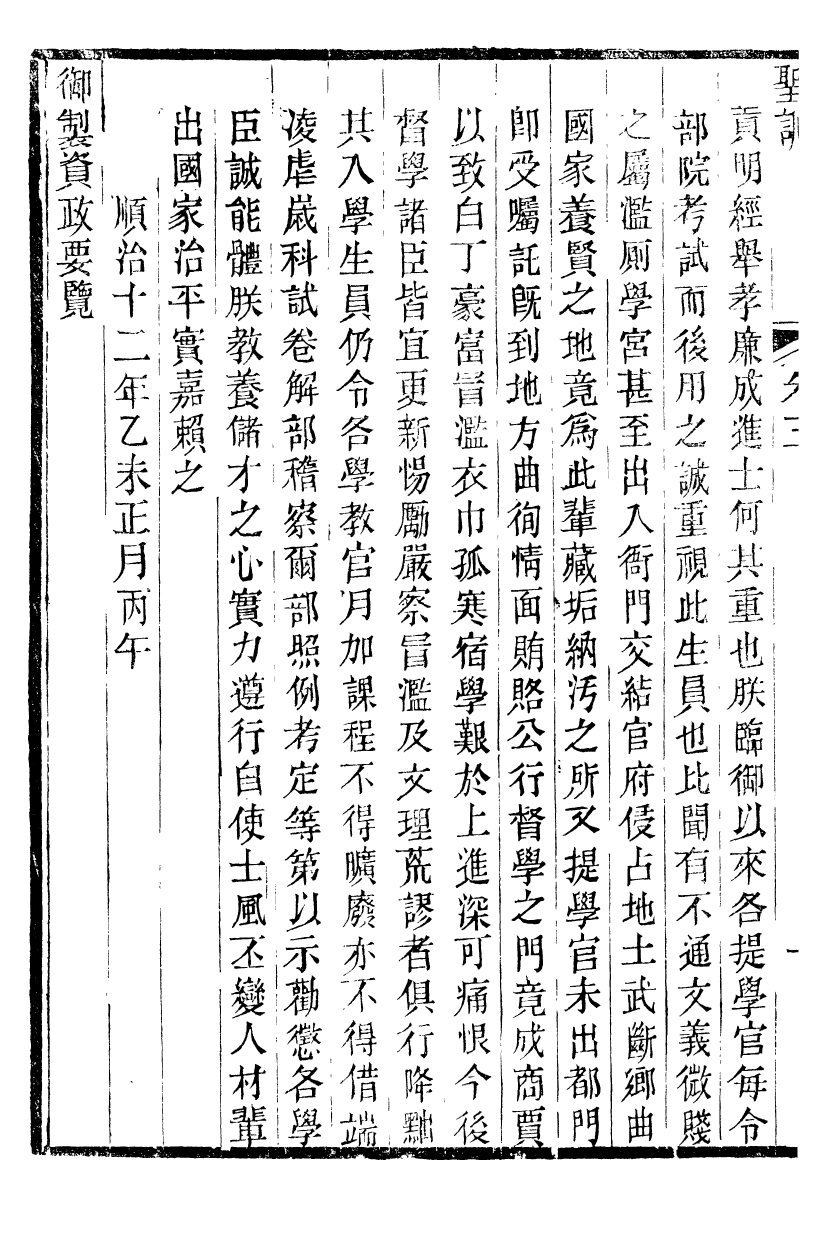 聖訓
貢明經舉孝廉成進士何其重也朕臨御以來各提學官每令
部院考試而後用之誠重視此生員也比聞有不通文義微賤
之屬濫厠學宮甚至出入衙門交結官府侵占地土武斷鄉曲
國家養賢之地竟爲此輩藏垢納污之所又提學官未出都門
卽受囑託旣到地方曲徇情面賄賂公行督學之門竟成商賈
以致白丁豪富冒濫衣巾孤寒宿學艱於上進深可痛恨今後
督學諸臣皆宜更新惕勵嚴察冒濫及文理荒謬者俱行降黜
其入學生員仍令各學教官月加課程不得曠廢亦不得借端
凌虐嵗科試卷解部稽察爾部照例考定等第以示勸懲各學
臣誠能體朕教養儲才之心實力遵行自使士風丕變人材輩
出國家治平實嘉賴之
順治十二年乙未正月丙午
御製資政要覽